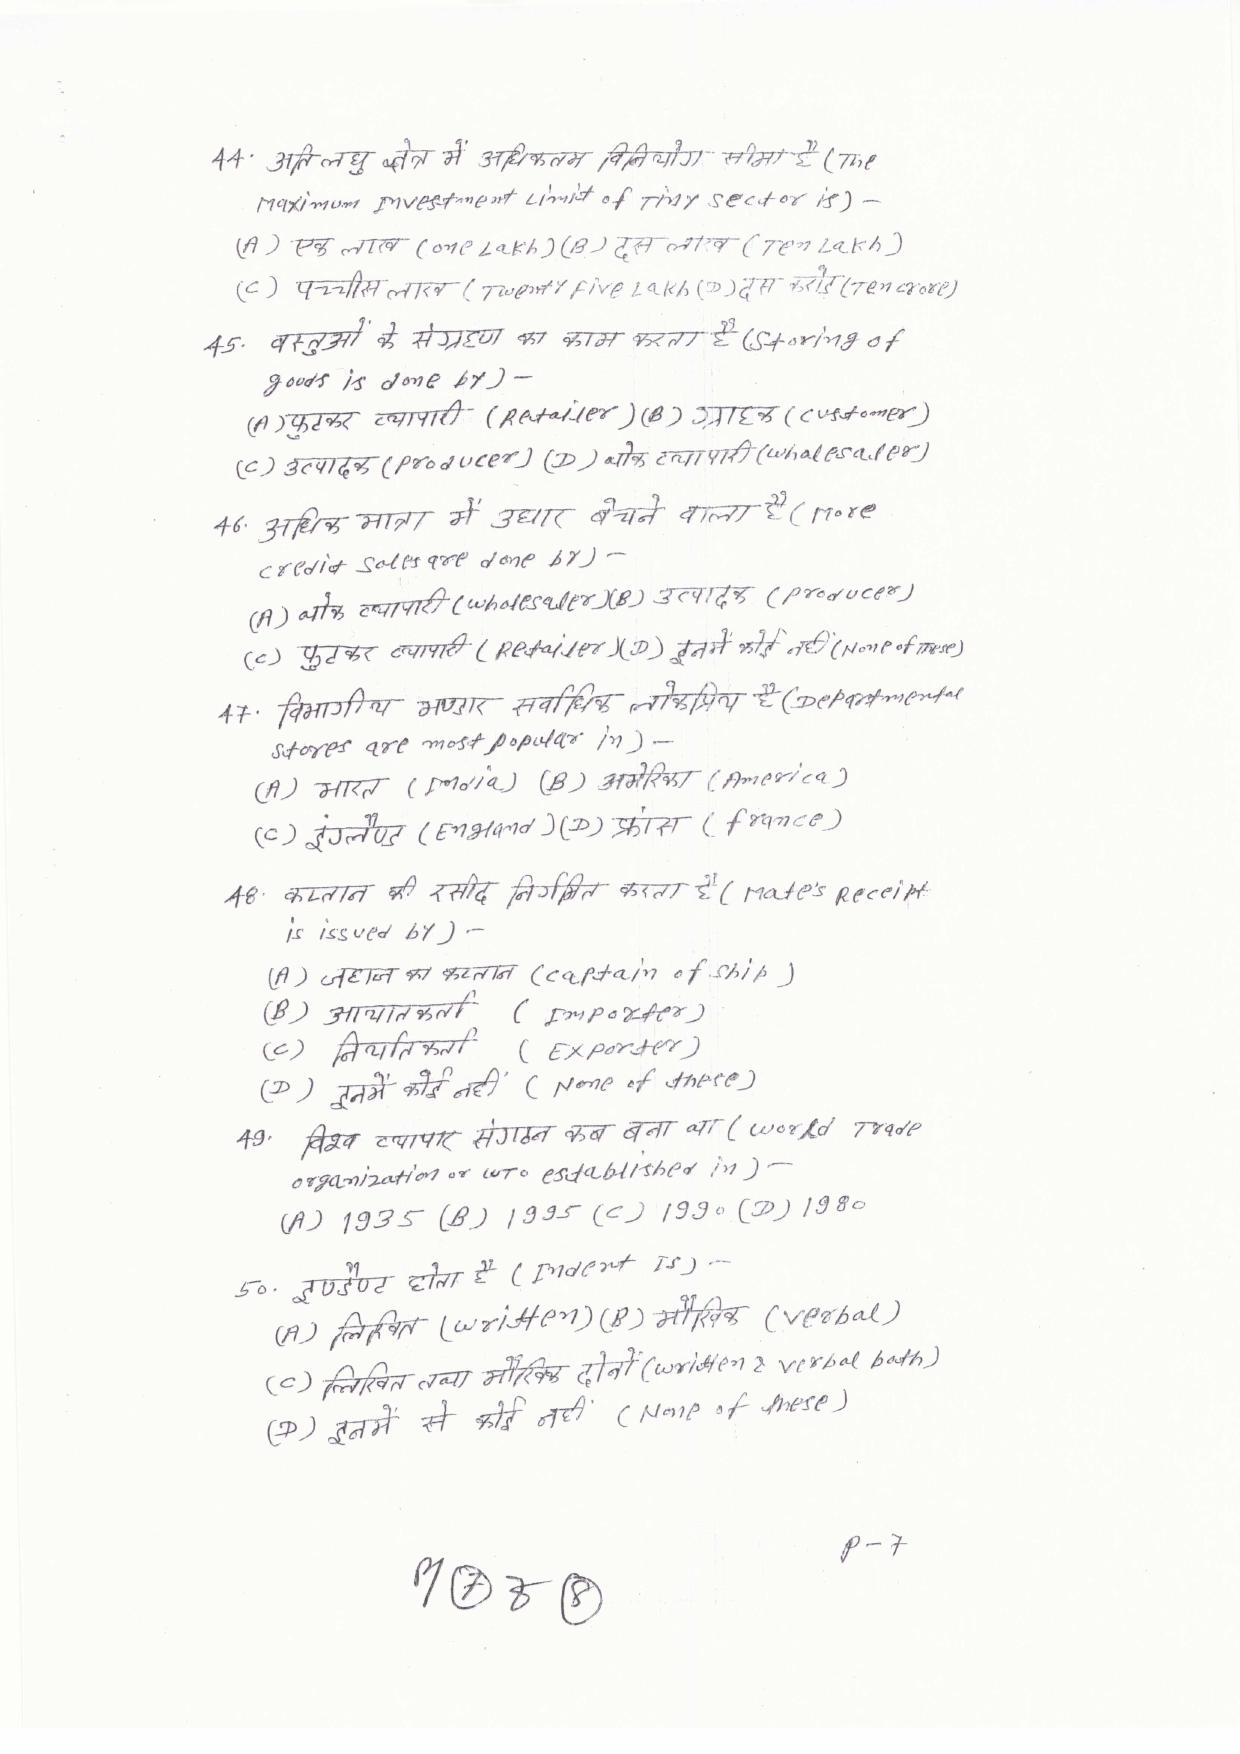 44. अति लघु क्षेत्र में अधिकतम विनियोग सीमा है (The
Maximum Investment Limit of Tiny sector is) –
(A) एक लाख (one Lakh) (B) दस लाख (Ten Lakh)
(C) पच्चीस लाख (Twenty Five Lakh (D) दस करोड़ (Ten crore)
45. वस्तुओं के संग्रहण का काम करता है (Storing of
goods is done by) –
(A) फुटकर व्यापारी (Retailer) (B) ग्राहक (customer)
(C) उत्पादक (Producer) (D) थोक व्यापारी (wholesaler)
46. अधिक मात्रा में उधार बेचने वाला है (More
credit sales are done by) –
(A) थोक व्यापारी (wholesaler) (B) उत्पादक (Producer)
(C) फुटकर व्यापारी (Retailer) (D) इनमें कोई नहीं (None of These)
47. विभागीय भण्डार सर्वाधिक लोकप्रिय है (Departmental
stores are most popular in) –
(A) भारत (India) (B) अमेरिका (America)
(C) इंग्लैण्ड (England) (D) फ्रांस (france)
48. कप्तान की रसीद निर्गमित करता है (Mate's Receipt
is issued by) –
(A) जहाज का कप्तान (captain of ship)
(B) आयातकर्ता (Importer)
(C) निर्यातकर्ता (Exporter)
(D) इनमें कोई नहीं (None of these)
49. विश्व व्यापार संगठन कब बना था (World Trade
organization or WTO established in) –
(A) 1935 (B) 1995 (C) 1990 (D) 1980
50. इण्डैण्ट होता है (Indent Is) –
(A) लिखित (written) (B) मौखिक (verbal)
(C) लिखित तथा मौखिक दोनों (written & verbal both)
(D) इनमें से कोई नहीं (None of these)
P – 7
7 & 8